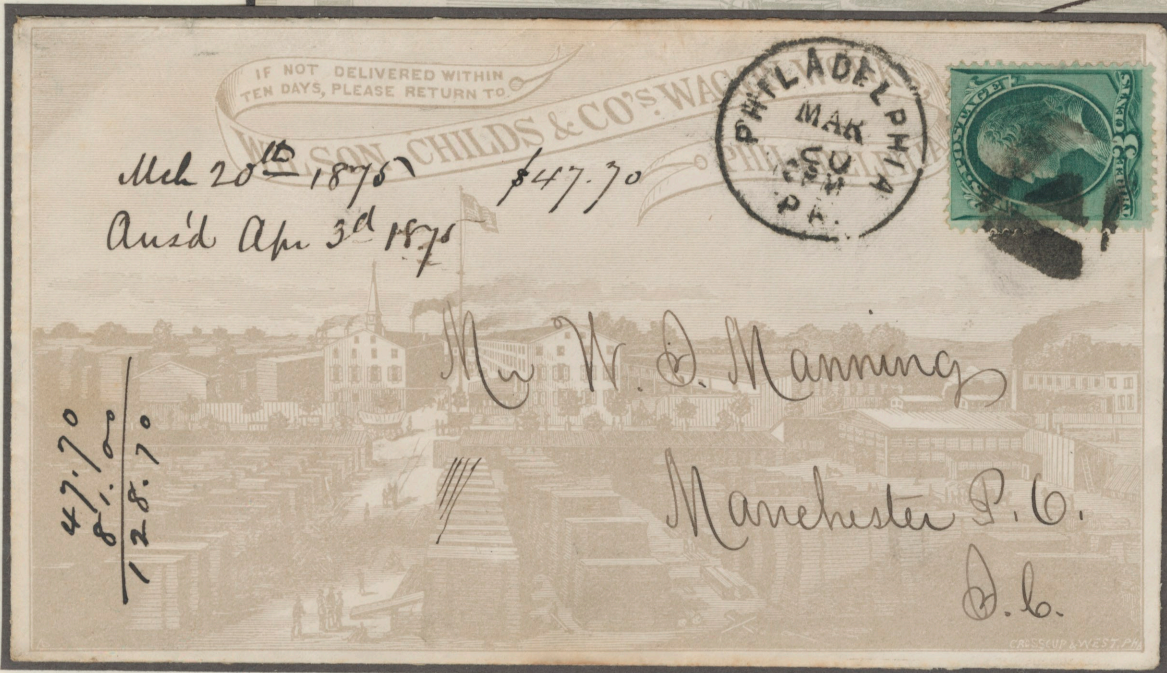 IF NOT DELIVERED WITHIN
TEN DAYS, PLEASE RETURN TO
WILSON, CHILDS & CO'S WAGON WORKS
PHILADELPHIA
PHILADELPHIA
MAR
20
PM
PA.
POSTAGE
Mch 20th 1875 $47.70
Ans'd Apr 3d 1875
Mr W. S. Manning
Manchester P. O.
S. C.
47.70
81.00
128.70